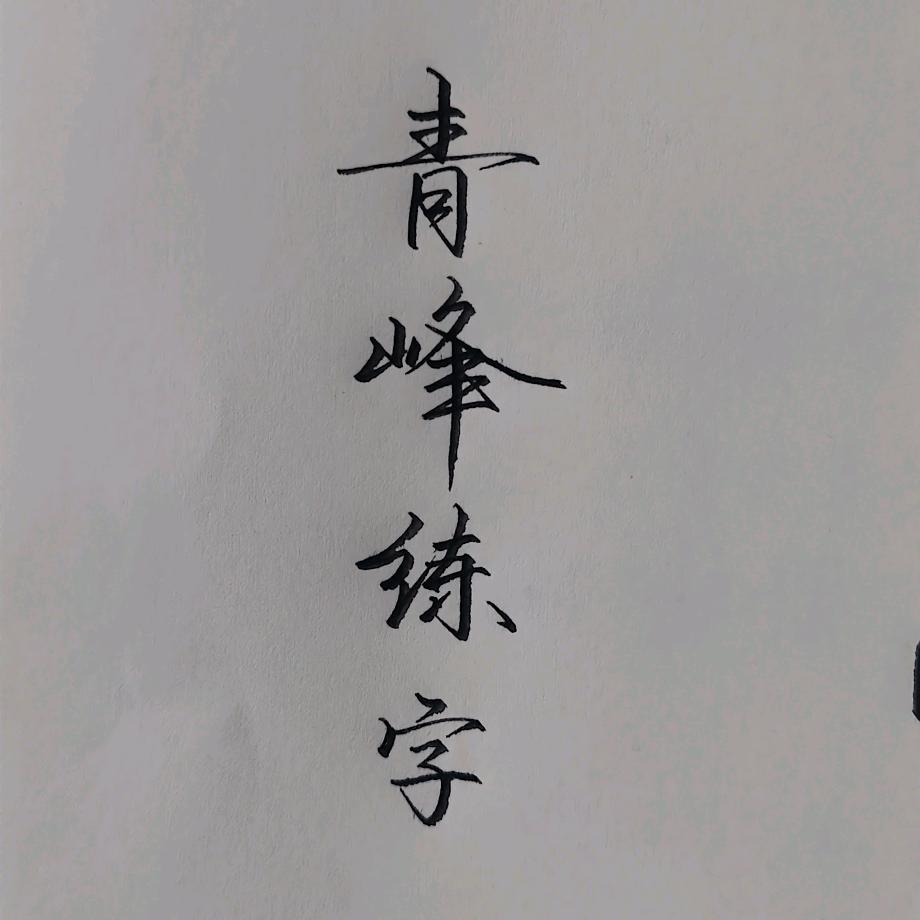 青峰练字